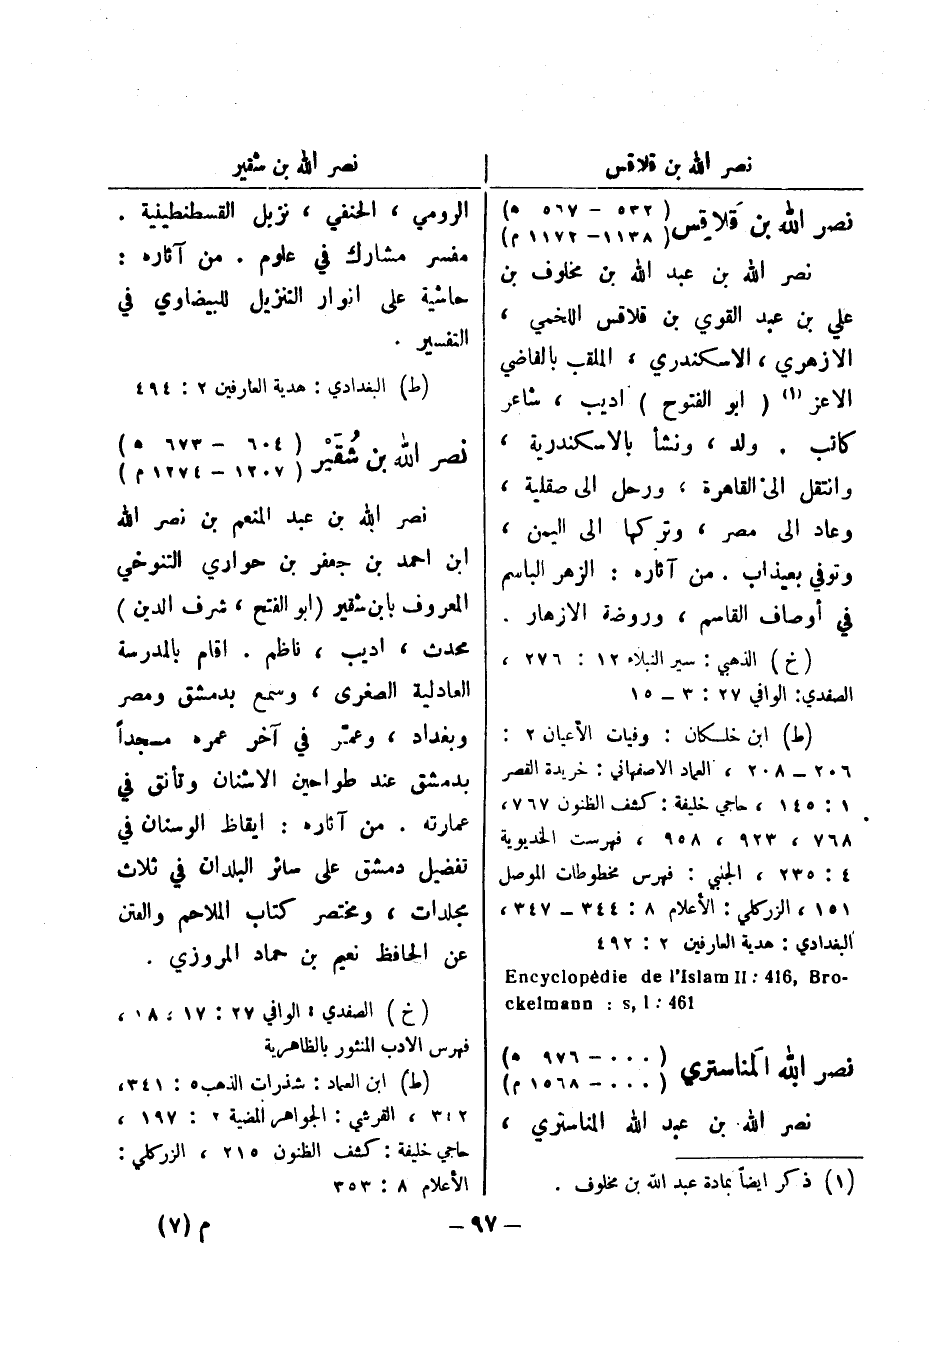 نصر الله بن قلاقس
نصر الله بن شقير
نصر الله بن قَلاقِس (٥٣٢ – ٥٦٧ ه)
(١١٣٨ – ١١٧٢ م)
نصر الله بن عبد الله بن مخلوف بن
علي بن عبد القوي بن قلاقس اللخمي ،
الازهري ، الاسكندري ، الملقب بالقاضي
الاعز (١) ( ابو الفتوح ) اديب ، شاعر
كاتب . ولد ، ونشأ بالاسكندرية ،
وانتقل الى القاهرة ، ورحل الى صقلية ،
وعاد الى مصر ، وتركها الى اليمن ،
وتوفي بعيذاب . من آثاره : الزهر الباسم
في أوصاف القاسم ، وروضة الازهار .
(خ) الذهبي : سير النبلاء ١٢ : ٢٧٦ ،
الصفدي : الوافي ٢٧ : ٣ – ١٥
(ط) ابن خلكان : وفيات الأعيان ٢ :
٢٠٦ – ٢٠٨ ، العماد الاصفهاني : خريدة القصر
١ : ١٤٥ ، حاجي خليفة : كشف الظنون ٧٦٧ ،
٧٦٨ ، ٩٢٣ ، ٩٥٨ ، فهرست الخديوية
٤ : ٢٣٥ ، الجلبي : فهرس مخطوطات الموصل
١٥١ ، الزركلي : الأعلام ٨ : ٣٤٤ – ٣٤٧ ،
البغدادي : هدية العارفين ٢ : ٤٩٢
Encyclopédie de l'Islam II : 416, Bro-
ckelmann : s, I : 461
نصر الله المناستري (٠٠٠ – ٩٧٦ ه)
(٠٠٠ – ١٥٦٨ م)
نصر الله بن عبد الله المناستري ،
(١) ذكر ايضاً بمادة عبد الله بن مخلوف .
الرومي ، الحنفي ، نزيل القسطنطينية .
مفسر مشارك في علوم . من آثاره :
حاشية على انوار التنزيل للبيضاوي في
التفسير .
(ط) البغدادي : هدية العارفين ٢ : ٤٩٤
نصر الله بن شُقَيْر (٦٠٤ – ٦٧٣ ه)
(١٢٠٧ – ١٢٧٤ م)
نصر الله بن عبد المنعم بن نصر الله
ابن احمد بن جعفر بن حواري التنوخي
المعروف بابن شقير (ابو الفتح ، شرف الدين)
محدث ، اديب ، ناظم . اقام بالمدرسة
العادلية الصغرى ، وسمع بدمشق ومصر
وبغداد ، وعمّر في آخر عمره مسجداً
بدمشق عند طواحين الاشنان وتأنق في
عمارته . من آثاره : ايقاظ الوسنان في
تفضيل دمشق على سائر البلدان في ثلاث
مجلدات ، ومختصر كتاب الملاحم والفتن
عن الحافظ نعيم بن حماد المروزي .
(خ) الصفدي : الوافي ٢٧ : ١٧ ، ١٨ ،
فهرس الادب المنثور بالظاهرية
(ط) ابن العماد : شذرات الذهب ٥ : ٣٤١ ،
٣٤٢ ، القرشي : الجواهر المضية ٢ : ١٩٧ ،
حاجي خليفة : كشف الظنون ٢١٥ ، الزركلي :
الأعلام ٨ : ٣٥٣
– ٩٧ –
م (٧)